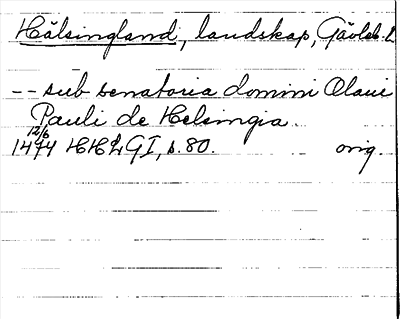 Hälsingland, landskap, Gävleb. l
-- sub senatoria domini Olaui
Pauli de Helsingia.
12/6
1474 HHLG I, s. 80. orig.